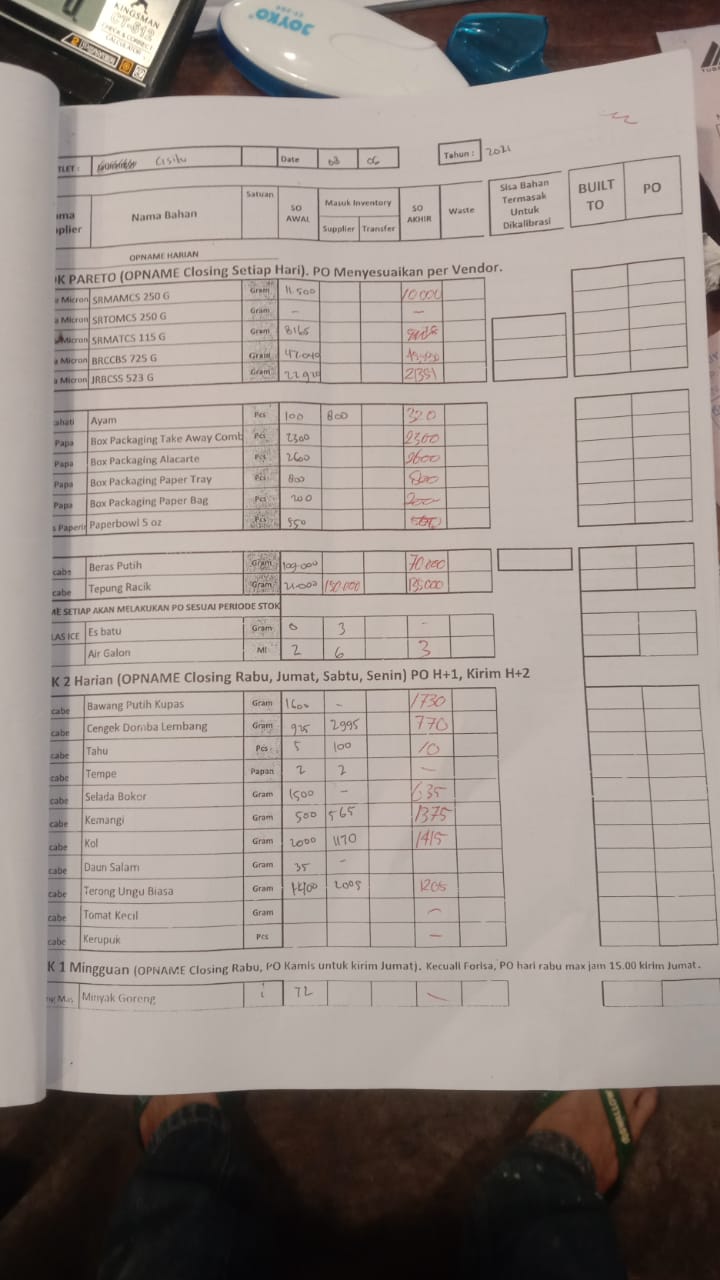 KINGSMAN
CHECK & CORRECT
CALCULATOR
JOYKO
TLET : Cisitu Date 03 06 Tahun : 2021
ama plier Nama Bahan Satuan SO AWAL Masuk Inventory Supplier Transfer SO AKHIR Waste Sisa Bahan Termasak Untuk Dikalibrasi BUILT TO PO
OPNAME HARIAN
K PARETO (OPNAME Closing Setiap Hari). PO Menyesuaikan per Vendor.
Micron SRMAMCS 250 G Gram 11.500 10.000
Micron SRTOMCS 250 G Gram - -
Micron SRMATCS 115 G Gram 8165
Micron BRCCBS 725 G Gram
Micron JRBCSS 523 G Gram
ahati Ayam Pcs 100 800 320
Papa Box Packaging Take Away Comb Pcs 2300 2300
Papa Box Packaging Alacarte Pcs 2600 2600
Papa Box Packaging Paper Tray Pcs 800 800
Papa Box Packaging Paper Bag Pcs 200 200
s Paperin Paperbowl 5 oz Pcs 550
cabe Beras Putih Gram 109.000 70.000
cabe Tepung Racik Gram 21.000 150.000 135.000
ME SETIAP AKAN MELAKUKAN PO SESUAI PERIODE STOK
LAS ICE Es batu Gram 0 3 -
Air Galon Ml 2 6 3
K 2 Harian (OPNAME Closing Rabu, Jumat, Sabtu, Senin) PO H+1, Kirim H+2
cabe Bawang Putih Kupas Gram 1600 - 1730
cabe Cengek Domba Lembang Gram 925 2995 770
cabe Tahu Pcs 5 100 10
cabe Tempe Papan 2 2 -
cabe Selada Bokor Gram 1500 - 635
cabe Kemangi Gram 500 565 1375
cabe Kol Gram 2000 1170 1415
cabe Daun Salam Gram 35 -
cabe Terong Ungu Biasa Gram 2005 1205
cabe Tomat Kecil Gram -
cabe Kerupuk Pcs -
K 1 Mingguan (OPNAME Closing Rabu, PO Kamis untuk kirim Jumat). Kecuali Forisa, PO hari rabu max jam 15.00 kirim Jumat.
Mas Minyak Goreng 72